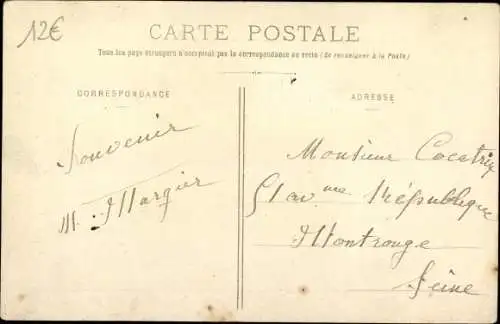 12€
CARTE POSTALE
Tous les pays étrangers n'acceptent pas la correspondance au recto (Se renseigner à la Poste)
CORRESPONDANCE
Souvenir
M.
ADRESSE
Monsieur Cocatrix
51 av République
Montrouge
Seine